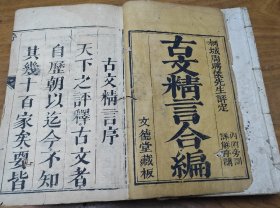 桐城周聘侯先生評定
古文精言合編
文德堂藏板
古文精言序
天下之評釋古文者
自歷朝以迄今不知
其幾十百家矣要皆